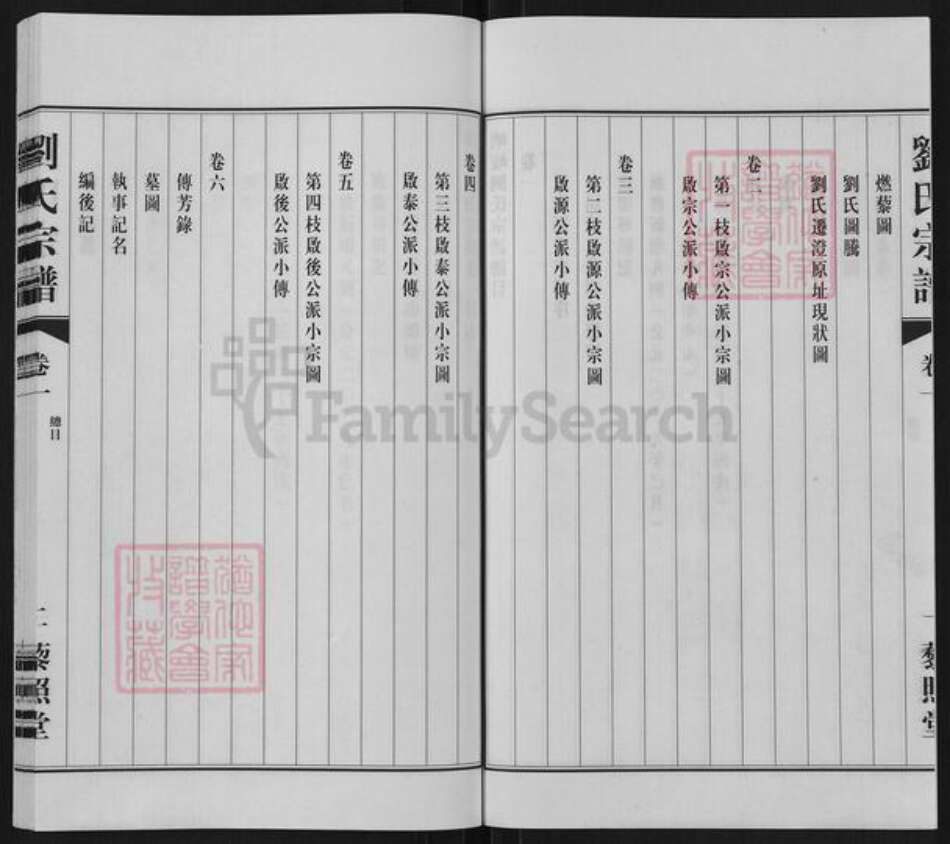 劉氏宗譜
卷一
藜照堂
燃藜圖
劉氏圖騰
劉氏遷澄原址現狀圖
卷二
第一枝啟宗公派小宗圖
啟宗公派小傳
卷三
第二枝啟源公派小宗圖
啟源公派小傳
卷四
第三枝啟泰公派小宗圖
啟泰公派小傳
卷五
第四枝啟後公派小宗圖
啟後公派小傳
卷六
傳芳錄
墓圖
執事記名
編後記
劉氏宗譜
卷一
總目
藜照堂
FamilySearch